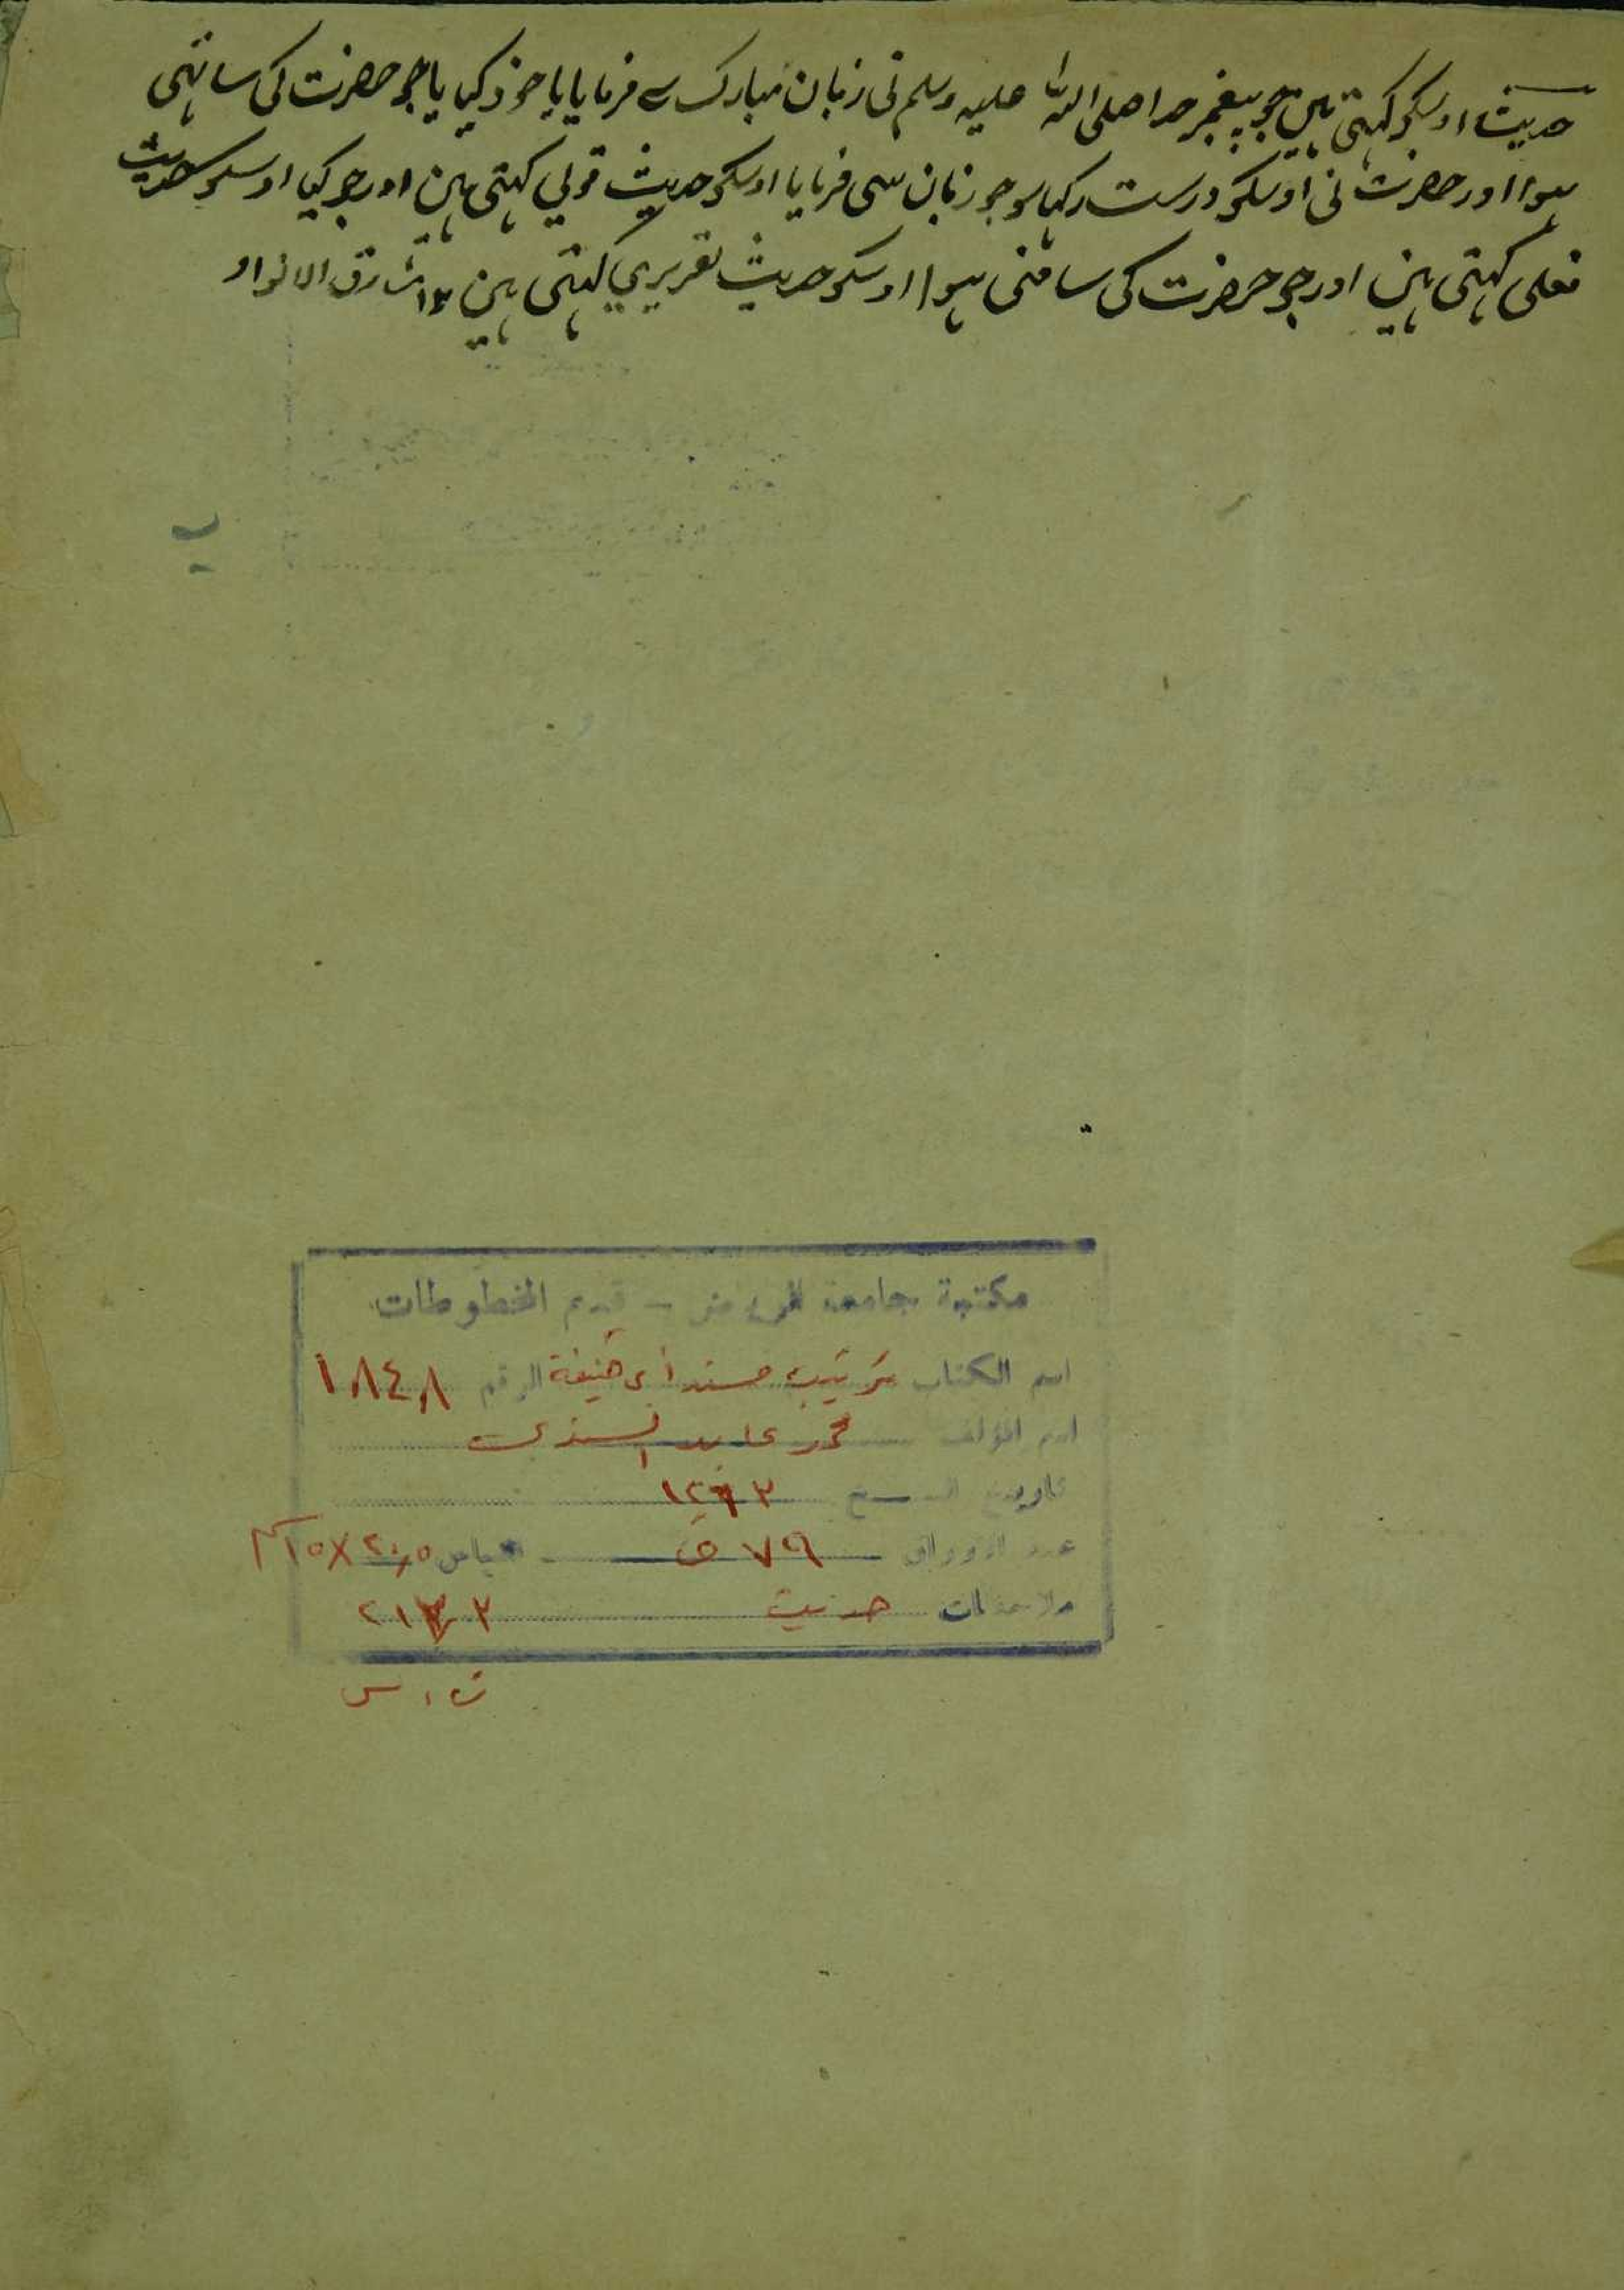 حدیث اوسکو کہتی ہین جو پیغمبر خدا صلی اللہ علیہ وسلم نی زبان مبارک سے فرمایا یا خود کیا یا جو حضرت کی سامنی
ہوا اور حضرت نی اوسکو درست رکہا سو جو زبان سی فرمایا اوسکو حدیث قولی کہتی ہین اور جو کیا اوسکو حدیث
فعلی کہتی ہین اور جو حضرت کی سامنی ہوا اوسکو حدیث تقریری کہتی ہین ۱۲ مشارق الانوار
ب
مكتبة جامعة الرياض - قسم المخطوطات
اسم الكتاب ترتيب مسند أبي حنيفة الرقم ١٨٤٨
اسم المؤلف محمد عابد السندي
تاريخ النسخ
عدد الأوراق ٧٩ ق القياس ٢٠٫٥ × ١٥
ملاحظات حديث